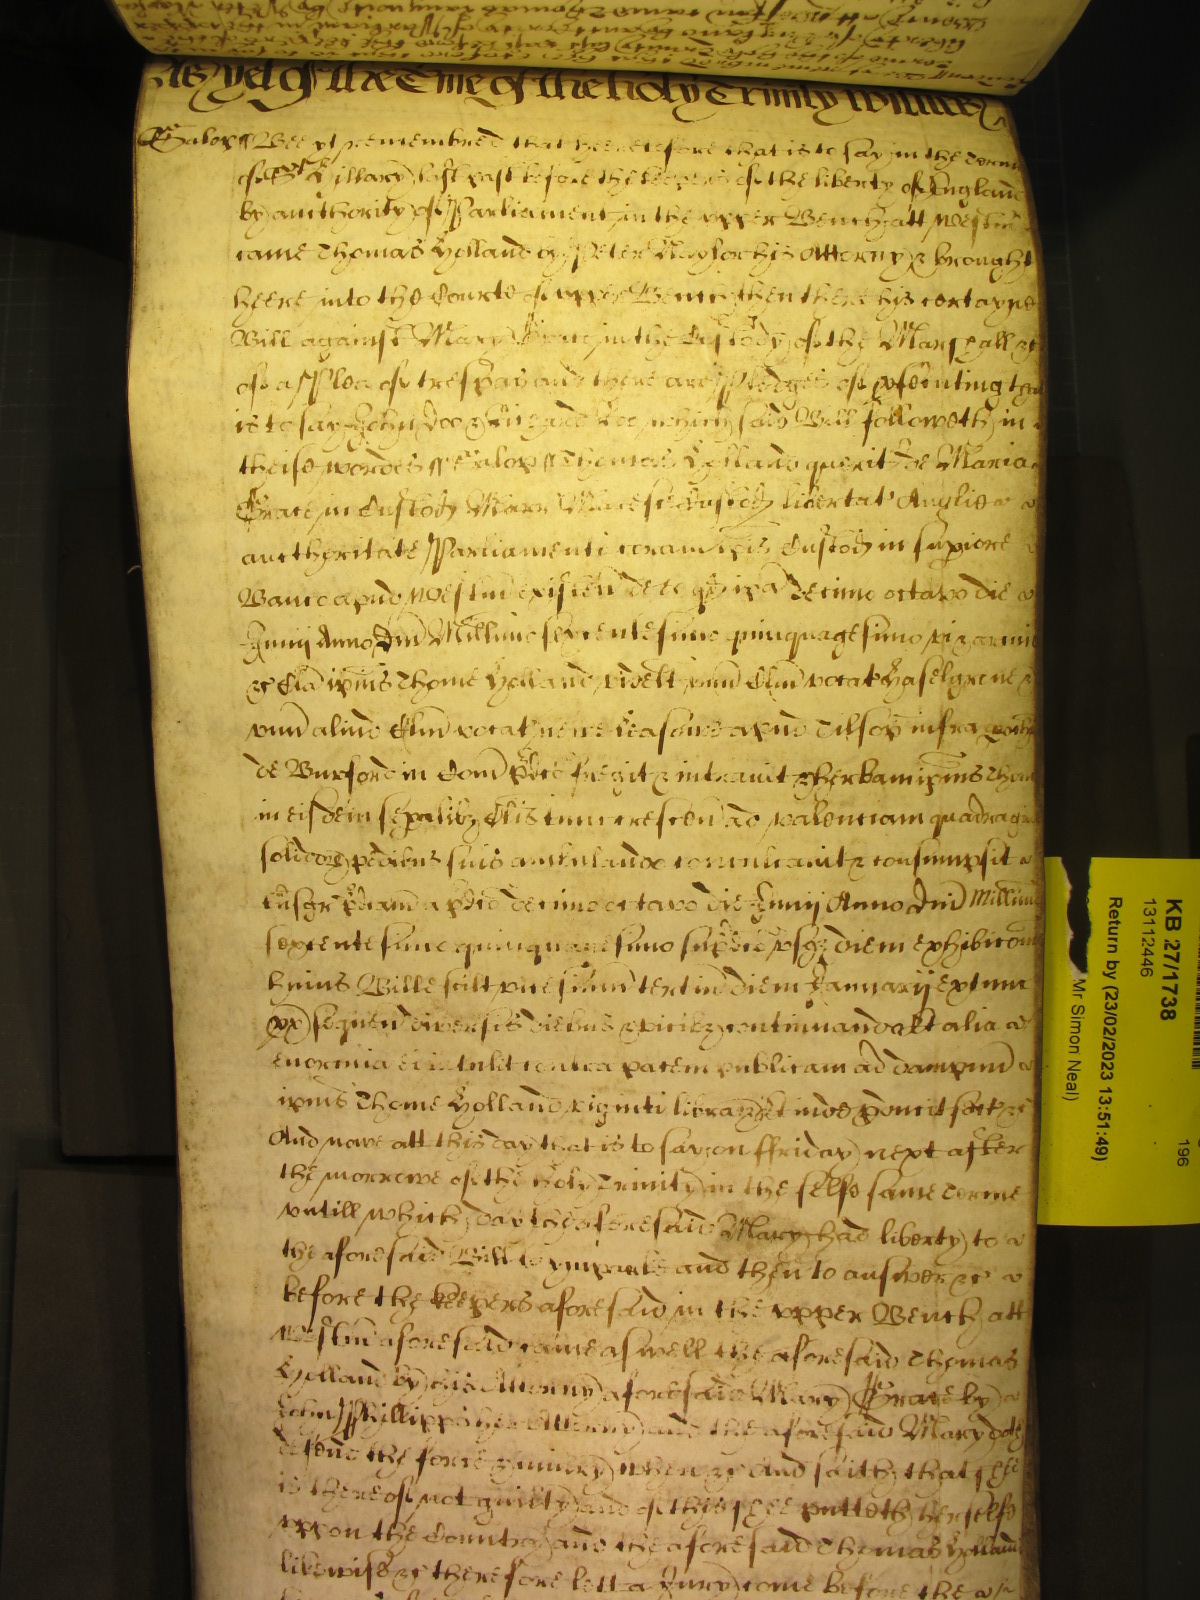 As yet of the Time of the holy Trinity witnes
Salop ss Bee yt remembred that heeretofore that is to say in the Terme
of St Hillary last past before the keepers of the liberty of England
by authority of Parliament in the upper Bench att Westm
came Thomas Holland by Peter his Attorny & brought
heere into the Courte of upper Bench then there his certayne
Bill against Mary Grace in the Custody of the Marshall &c
of a Plea of trespas and there are Pledges of psecuting that
is to say John Doo & Richard Roo which said Bill followeth in
theise wordes ss Salop ss Thomas Holland querit de Maria
Grace in Custod Marr Maresc Custod libertat Anglie
aucthoritate Parliamenti coram ipis Custod in supiore
Banco apud Westm existen de eo qd ipa decimo octavo die
Junij Anno Dm Millimo sexcentesimo quinquagesimo vi & armis
&c Clm ipius Thome Holland videlt unu Clm vocat Haselgrene &
unu aliud Clm vocat newe Leasowe apud Tilsop infra poch
de Burford in Com pdco fregit & intravit & herbam ipius Thome
in eisdem sepalibz Clis tunc crescen ad valenciam quadraginta
solidoz pedibus suis ambulando conculcavit & consumpsit
Tnsgr pdcam a pdco decimo octavo die Junij Anno Dm Millimo
sexcentesimo quinquagesimo supdco usqz diem exhibiconis
huius Bille scilt vicesimu tertiu diem Januarij extunc
px sequen diversis diebus & vicibz continuando Et alia
enormia ei intulit contra pacem publicam ad dampnu
ipius Thome Holland viginti libraz Et inde pducit sect &c
And nowe att this day that is to say on ffriday next after
the morrowe of the holy Trinity in the selfe same Terme
untill which day the aforesaid Mary had liberty to
the aforesaid Bill to imparle and then to answer &c
before the keepers aforesaid in the upper Bench att
Westm aforesaid came aswell the aforesaid Thomas
Holland by his Attorny aforesaid Mary Grace by
John Phillipps her Attorny and the aforesaid Mary doth
defend the force & iniury when &c And saith that shee
is thereof not guilty and of this shee putteth herselfe
uppon the Country and the aforesaid Thomas Holland
likewise &c therefore lett a Jury come before the
KB 27/1738
13112446
196
Return by (23/02/2023 13:51:49)
Mr Simon Neal)